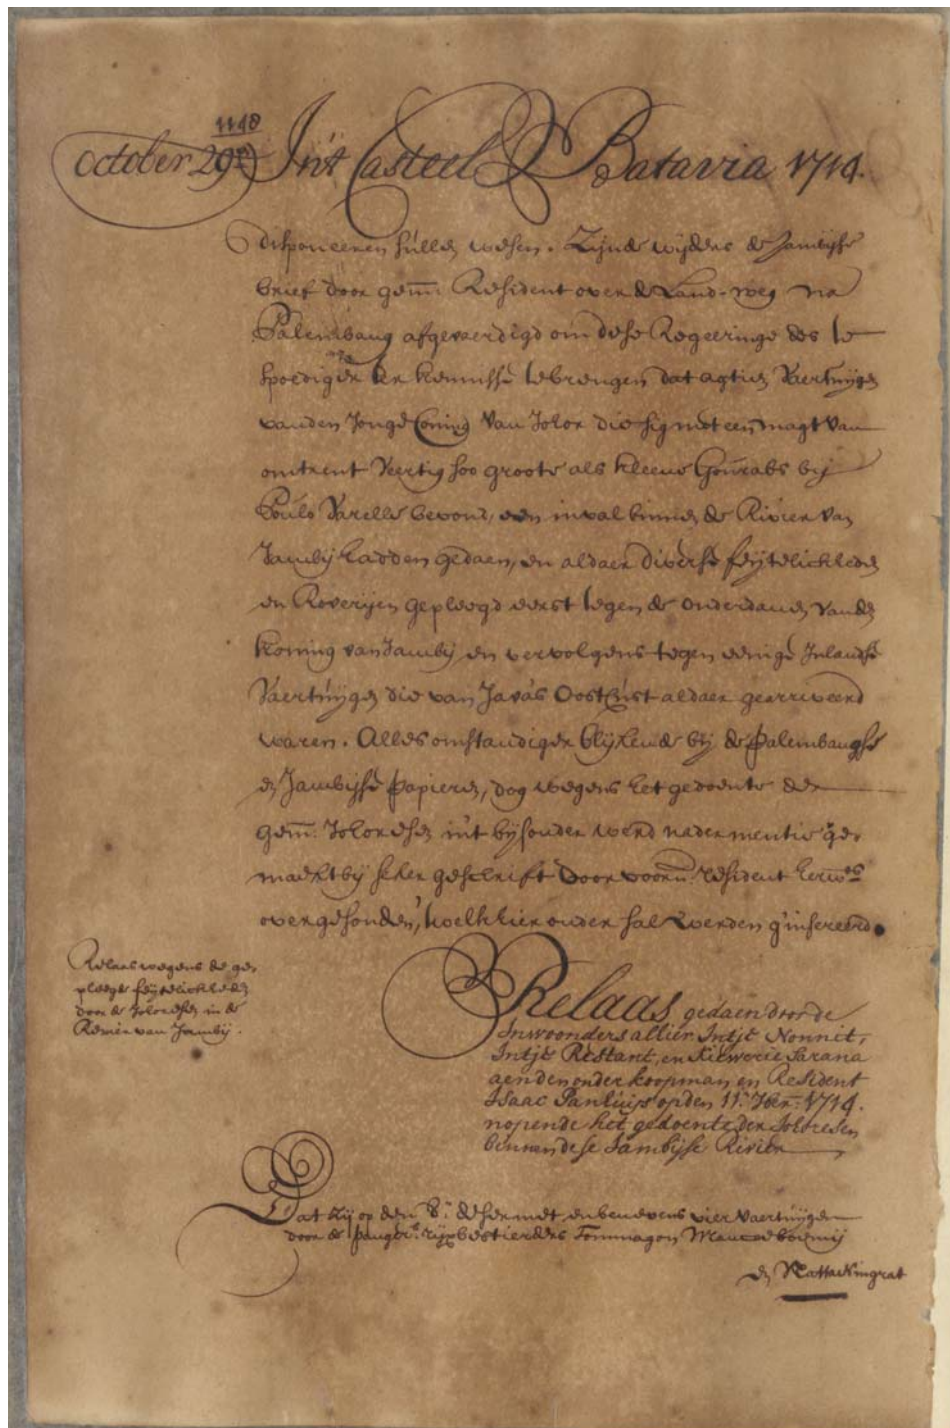 1148
October 29e In't Casteel Batavia 1714.
disponeeren sullen wesen. Zijnde wijders de Jambijse
brief door gem: Resident over de Land-weg na
Palembang afgevaerdigd om dese Regeeringe des te
spoediger ter kennisse te brengen dat agtien Vaertuijgen
van den Jonge Coning van Johor die sig met een magt van
omtrent Veertig soo groote als kleene Gourabs bij
Poulo Varelle bevond, een inval binnen de Rivier van
Jambij hadden gedaen, en aldaer diverse feijtelickheden
en Roverijen gepleegd eerst tegen de onderdanen van den
koning van Jambij en vervolgens tegen eenige Inlandse
Vaertuijgen die van Javas Oostcust aldaer gearriveerd
waren. Alles omstandiger blijkende bij de Palembangse
en Jambijse papieren, dog wegens het gedoente der
gem: Johoresen in't bijsonder werd nader mentie ge-
maekt bij seker geschrift door voorn: resident herw:ts
overgesonden, 'twelk hier onder sal werden g'insereerd.
Relaas wegens de ge-
pleegde feijtelickheden
door de Johoresen in de
Revier van Jambij.
Relaas gedaen door de
Inwoonders alhier Intje Nonnit,
Intje Restant, en Kiewerie Sarana
aen den onder koopman en Resident
Isaac Panhuijs op den 11:e 7ber: 1714.
nopende het gedoente der Johoresen
binnen dese Jambijse Rivier
Dat zij op den 8:e deser met en benevens vier Vaertuijgen
door de Pang:s rijxbestierders Tommagon
en Nattaningrat